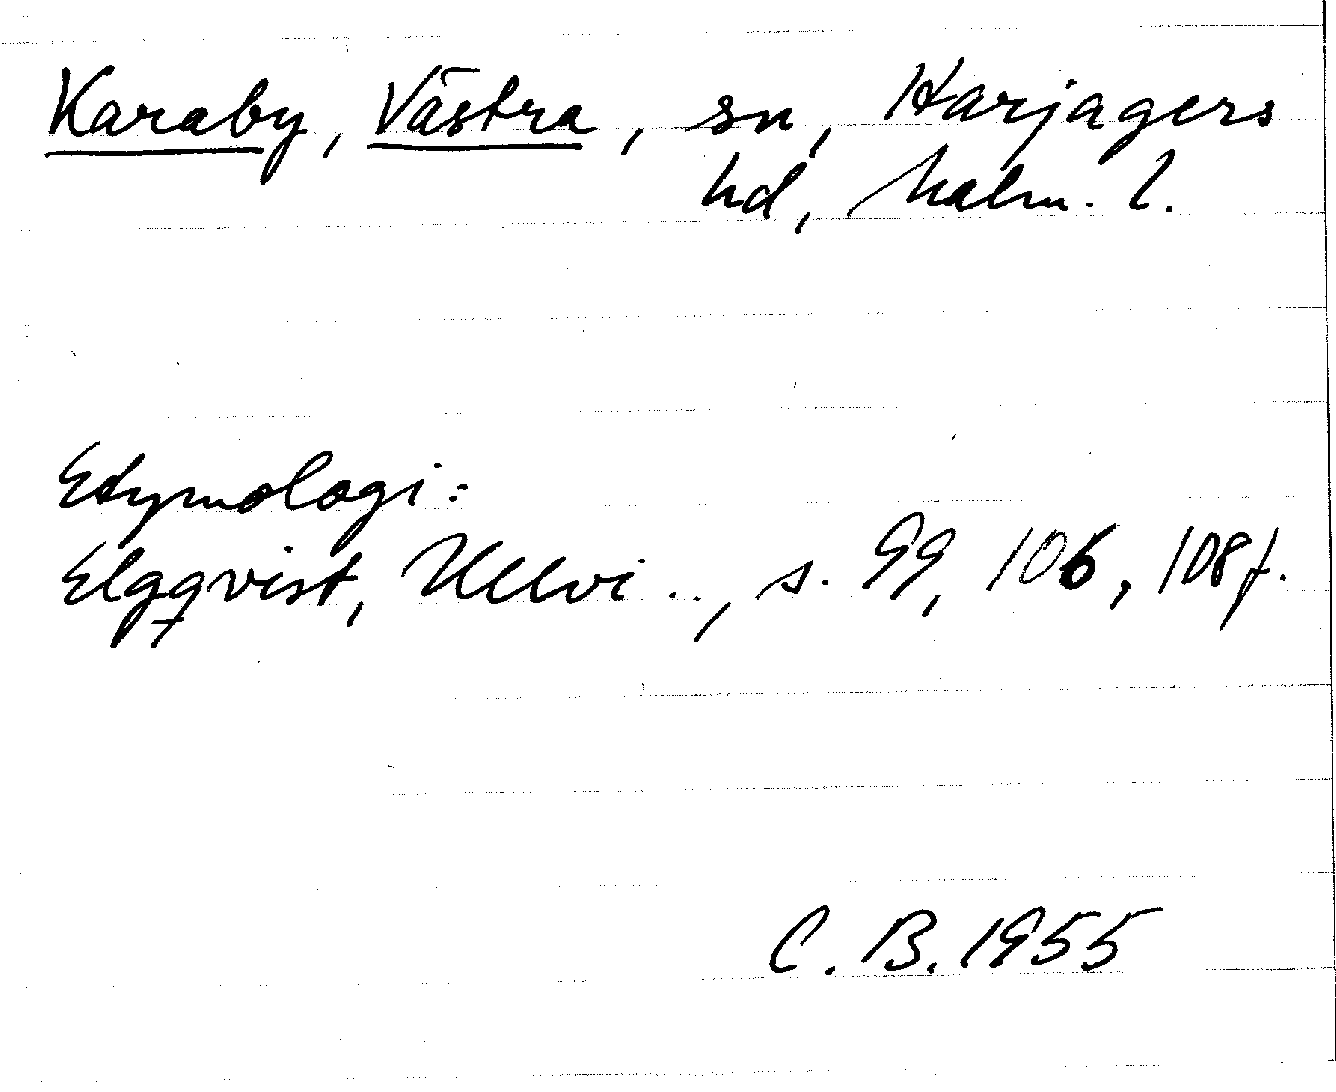 Karaby, Västra, sn, Harjagers
hd, Malm. l.
Etymologi:
Elgqvist, Ullvi.., s. 99, 106, 108f.
C. B. 1955